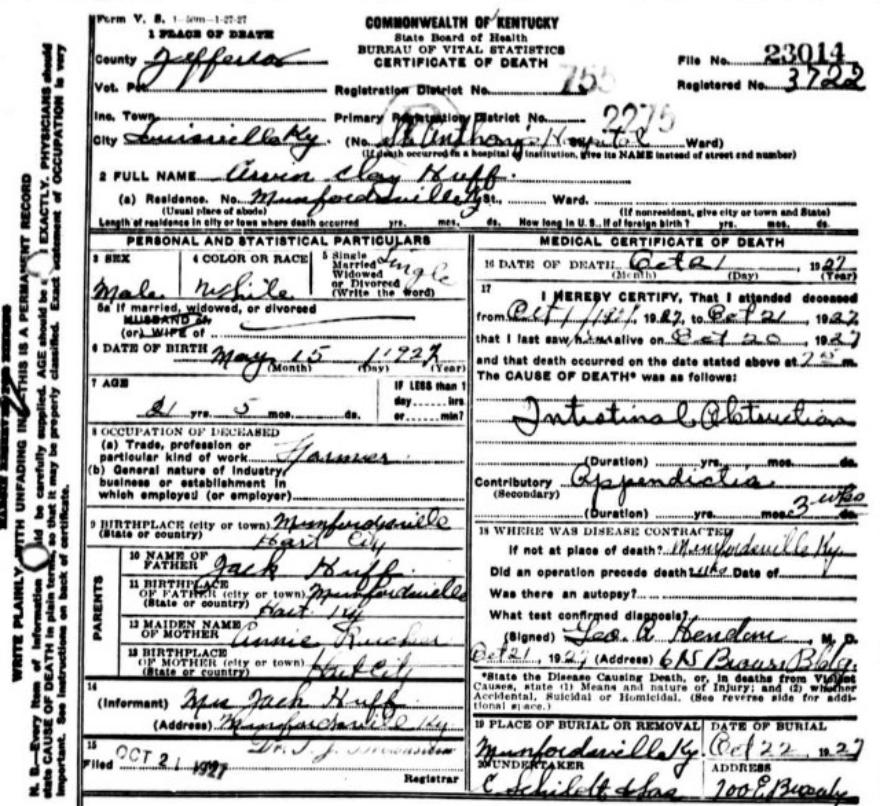 Form V. S. 1-50m-1-27-27
COMMONWEALTH OF KENTUCKY
State Board of Health
BUREAU OF VITAL STATISTICS
CERTIFICATE OF DEATH
1 PLACE OF DEATH
County Jefferson
File No. 23014
Vot. Pct. Registration District No. 755 Registered No. 3722
Inc. Town Primary Registration District No. 2275
City Louisville Ky. (No. St Anthony's Hospital Ward)
(If death occurred in a hospital or institution, give its NAME instead of street and number)
2 FULL NAME Clay Huff.
(a) Residence. No. Munfordsville St., Ward.
(Usual place of abode) (If nonresident, give city or town and State)
Length of residence in city or town where death occurred yrs. mos. ds. How long in U. S., if of foreign birth? yrs. mos. ds.
PERSONAL AND STATISTICAL PARTICULARS
3 SEX
Male
4 COLOR OR RACE
White
5 Single
Married
Widowed
or Divorced
(Write the word)
Single
5a If married, widowed, or divorced
HUSBAND of
(or) WIFE of
6 DATE OF BIRTH May 15 1927
(Month) (Day) (Year)
7 AGE
21 yrs. 5 mos. ds.
IF LESS than 1
day hrs
or min?
8 OCCUPATION OF DECEASED
(a) Trade, profession or
particular kind of work Farmer
(b) General nature of industry
business or establishment in
which employed (or employer)
9 BIRTHPLACE (city or town) Munfordsville
(State or country) Hart City
PARENTS
10 NAME OF
FATHER Jack Huff.
11 BIRTHPLACE
OF FATHER (city or town) Munfordsville
(State or country) Hart Ky
12 MAIDEN NAME
OF MOTHER Annie Rucker
13 BIRTHPLACE
OF MOTHER (city or town)
(State or country) Hart City
14
(Informant) Mrs Jack Huff.
(Address) Munfordsville Ky.
15
Filed OCT 21 1927 Dr. T. J.
Registrar
MEDICAL CERTIFICATE OF DEATH
16 DATE OF DEATH Oct 21 1927
(Month) (Day) (Year)
17
I HEREBY CERTIFY, That I attended deceased
from Oct 1/1927, 1927, to Oct 21, 1927
that I last saw him alive on Oct 20, 1927
and that death occurred on the date stated above at m.
The CAUSE OF DEATH* was as follows:
Intestinal Obstruction
(Duration) yrs. mos. ds.
Contributory Appendictis
(Secondary)
(Duration) yrs. mos. 3 wks ds.
18 WHERE WAS DISEASE CONTRACTED
If not at place of death? Munfordsville Ky.
Did an operation precede death? Date of
Was there an autopsy?
What test confirmed diagnosis?
(Signed) Geo. A. Hendon, M. D.
Oct 21, 1927 (Address) Bldg.
*State the Disease Causing Death, or, in deaths from Violent
Causes, state (1) Means and nature of Injury; and (2) whether
Accidental, Suicidal or Homicidal. (See reverse side for addi-
tional space.)
19 PLACE OF BURIAL OR REMOVAL
Munfordsville Ky.
DATE OF BURIAL
Oct 22, 1927
20 UNDERTAKER
C Schildt & Son
ADDRESS
700 E
MARGIN RESERVED FOR BINDING
WRITE PLAINLY WITH UNFADING INK—THIS IS A PERMANENT RECORD
N. B.—Every item of information should be carefully supplied. AGE should be EXACTLY. PHYSICIANS should
state CAUSE OF DEATH in plain terms, so that it may be properly classified. Exact statement of OCCUPATION is very
important. See instructions on back of certificate.